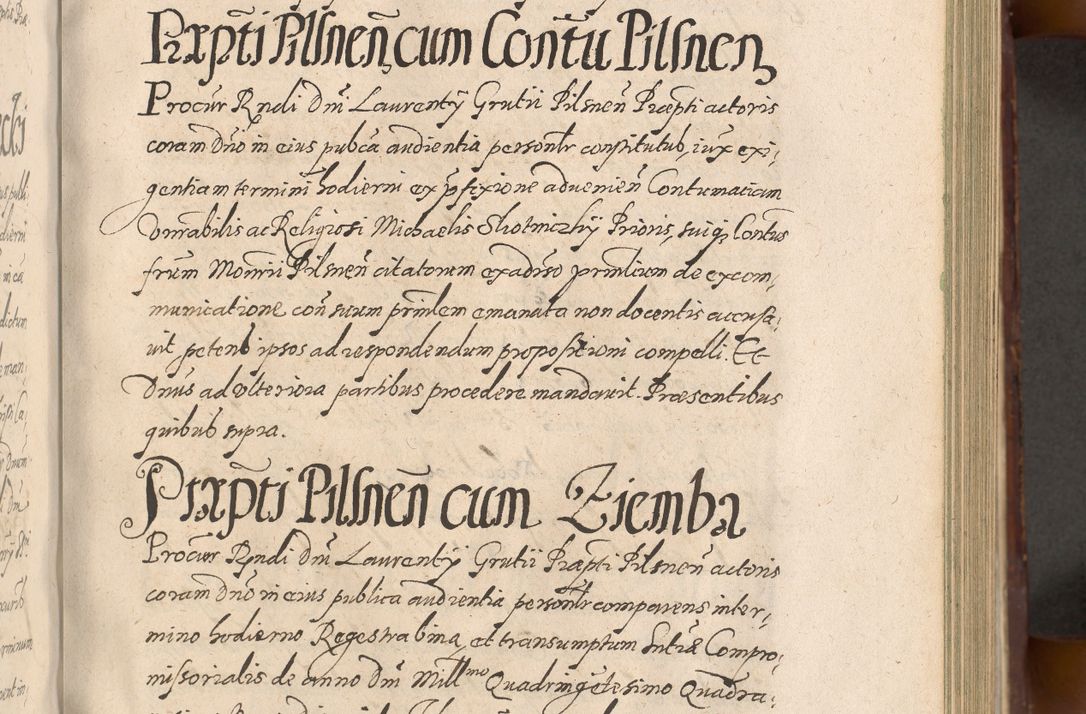 Præpti Pilsneñ cum Contũ Pilsneñ
Procur Rndi Dni Laurentÿ Grutii Pilsneñ Præpti actoris
coram Dno in eius pubca audientia personlr constitutus, iux exi,
gentiam termini hodierni ex pfixione advenieñ Contumatiam
Vnrabilis ac Religiosi Michaelis Slotniczkÿ Prioris, suiq Contus
frum Monrii Pilsneñ citatorum ex adiso prmlium de excom,
municatione con suum prmlem emanata non docentis accusa,
vit petens ipsos ad respondendum propositioni compelli. Et
Dnus ad Vlteriora partibus procedere mandavit. Præsentibus
quibus supra.
Præpti Pilsneñ cum Ziemba
Procur Rndi Dni Laurentÿ Grutii Præpti Pilsneñ actoris
coram Dno in eius publica audientia personlr comparens in ter,
mino hodierno Regestra bina, et transumptum Sntiæ Compro,
missorialis de anno Dni Mill mo Quadringetesimo Quadra,